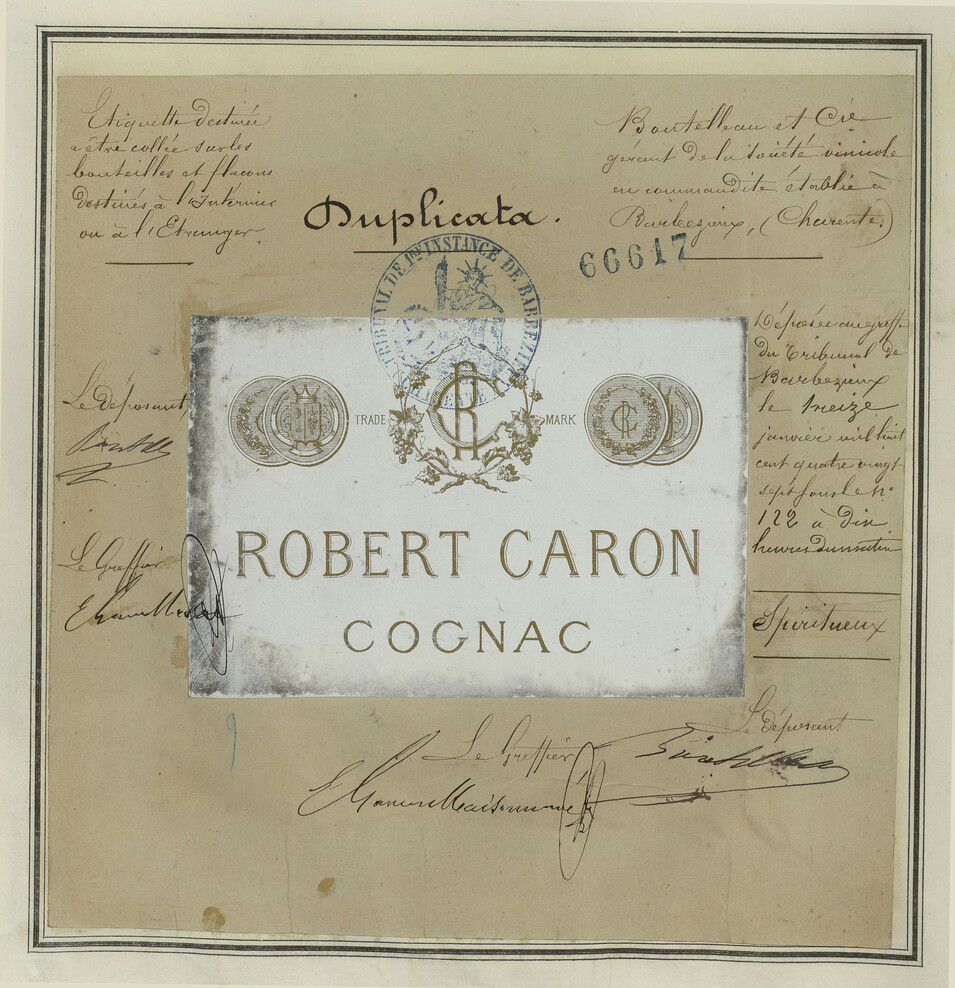 Etiquette destinée
a être collée sur les
bouteilles et flacons
destinés à l'Intérieur
ou à l'Etranger.
Duplicata.
Boutelleau et Cie
gérant de la société vinicole
en commandite établie à
Barbezieux, (Charente)
66617
TRIBUNAL DE 1ère INSTANCE DE BARBEZIEUX
Le déposant
Le Greffier
TRADE MARK
ROBERT CARON
COGNAC
Déposée au greffe
du Tribunal de
Barbezieux
le treize
janvier mil huit
cent quatre vingt
sept sous le No
122 à dix
heures du matin
Spiritueux
9
Le Greffier
Le déposant